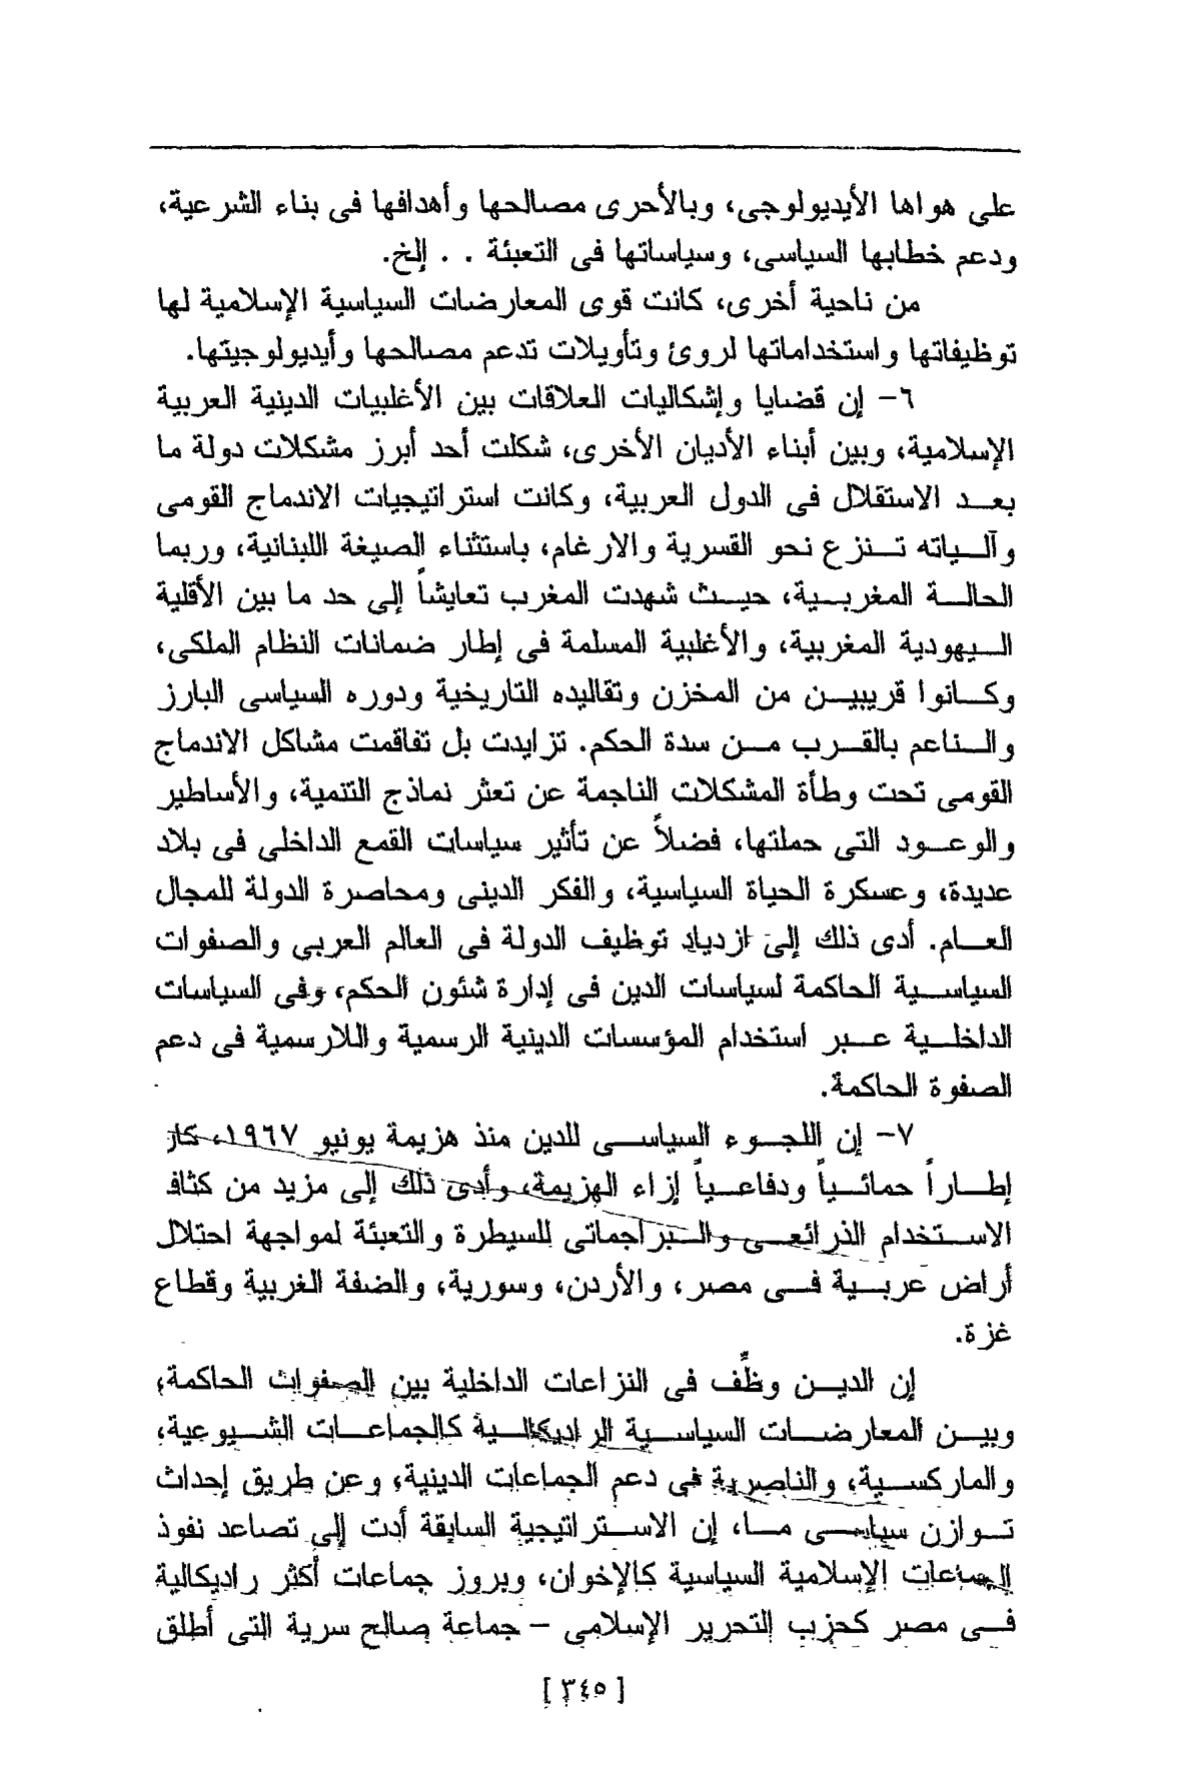 على هواها الأيديولوجى، وبالأحرى مصالحها وأهدافها فى بناء الشرعية،
ودعم خطابها السياسى، وسياساتها فى التعبئة . . إلخ.
من ناحية أخرى، كانت قوى المعارضات السياسية الإسلامية لها
توظيفاتها واستخداماتها لروئ وتأويلات تدعم مصالحها وأيديولوجيتها.
٦- إن قضايا وإشكاليات العلاقات بين الأغلبيات الدينية العربية
الإسلامية، وبين أبناء الأديان الأخرى، شكلت أحد أبرز مشكلات دولة ما
بعد الاستقلال فى الدول العربية، وكانت استراتيجيات الاندماج القومى
وآلياته تنزع نحو القسرية والارغام، باستثناء الصيغة اللبنانية، وربما
الحالة المغربية، حيث شهدت المغرب تعايشاً إلى حد ما بين الأقلية
اليهودية المغربية، والأغلبية المسلمة فى إطار ضمانات النظام الملكى،
وكانوا قريبين من المخزن وتقاليده التاريخية ودوره السياسى البارز
والناعم بالقرب من سدة الحكم. تزايدت بل تفاقمت مشاكل الاندماج
القومى تحت وطأة المشكلات الناجمة عن تعثر نماذج التنمية، والأساطير
والوعود التى حملتها، فضلاً عن تأثير سياسات القمع الداخلى فى بلاد
عديدة، وعسكرة الحياة السياسية، والفكر الدينى ومحاصرة الدولة للمجال
العام. أدى ذلك إلى ازدياد توظيف الدولة فى العالم العربى والصفوات
السياسية الحاكمة لسياسات الدين فى إدارة شئون الحكم، وفى السياسات
الداخلية عبر استخدام المؤسسات الدينية الرسمية واللارسمية فى دعم
الصفوة الحاكمة.
٧- إن اللجوء السياسى للدين منذ هزيمة يونيو ١٩٦٧، كان
إطاراً حمائياً ودفاعياً إزاء الهزيمة، وأدى ذلك إلى مزيد من كثافة
الاستخدام الذرائعى والبراجماتى للسيطرة والتعبئة لمواجهة احتلال
أراض عربية فى مصر، والأردن، وسورية، والضفة الغربية وقطاع
غزة.
إن الدين وظِّف فى النزاعات الداخلية بين الصفوات الحاكمة،
وبين المعارضات السياسية الراديكالية كالجماعات الشيوعية،
والماركسية، والناصرية فى دعم الجماعات الدينية، وعن طريق إحداث
توازن سياسى ما، إن الاستراتيجية السابقة أدت إلى تصاعد نفوذ
الجماعات الإسلامية السياسية كالإخوان، وبروز جماعات أكثر راديكالية
فى مصر كحزب التحرير الإسلامى - جماعة صالح سرية التى أطلق
[ ٣٤٥ ]